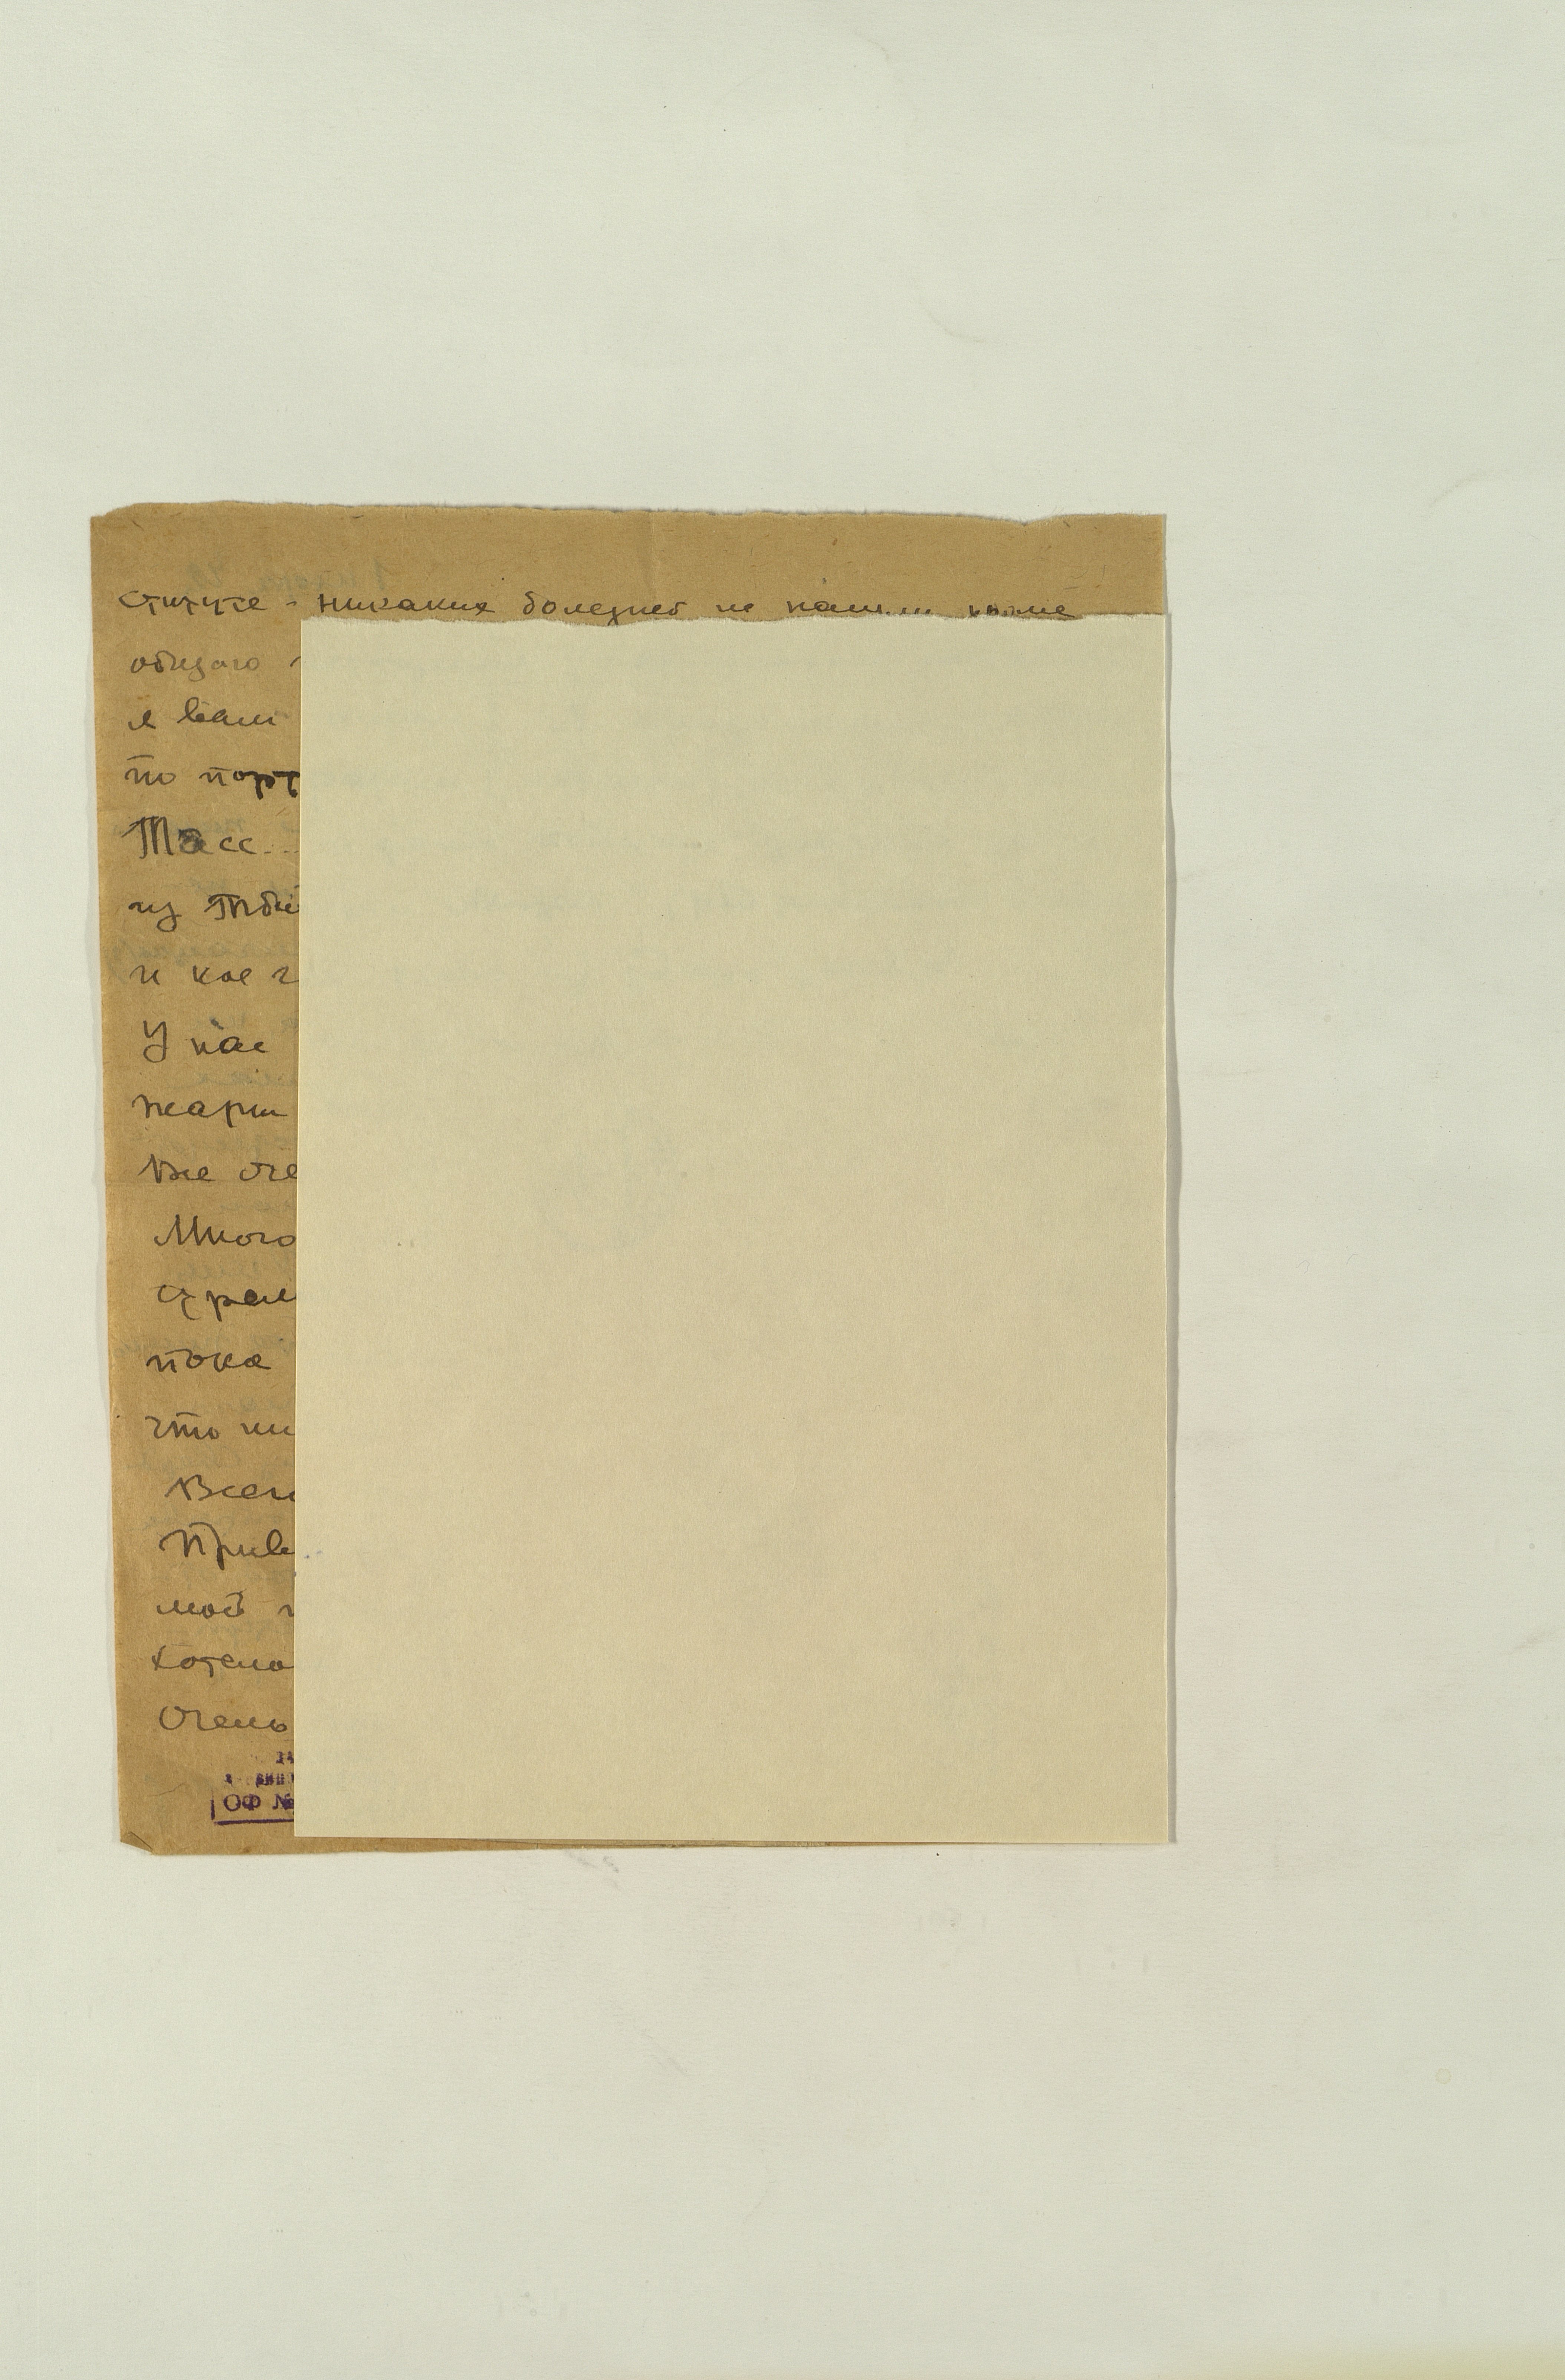 ституте - никаких болезней не нашли кроме
общего
я вам
по порт
Тасс...
из Тби
и кое
У нас
жарки
Все оче
Много
Пока
что ни
Всем
Приве
мой
Хотело
Очень
ОФ №